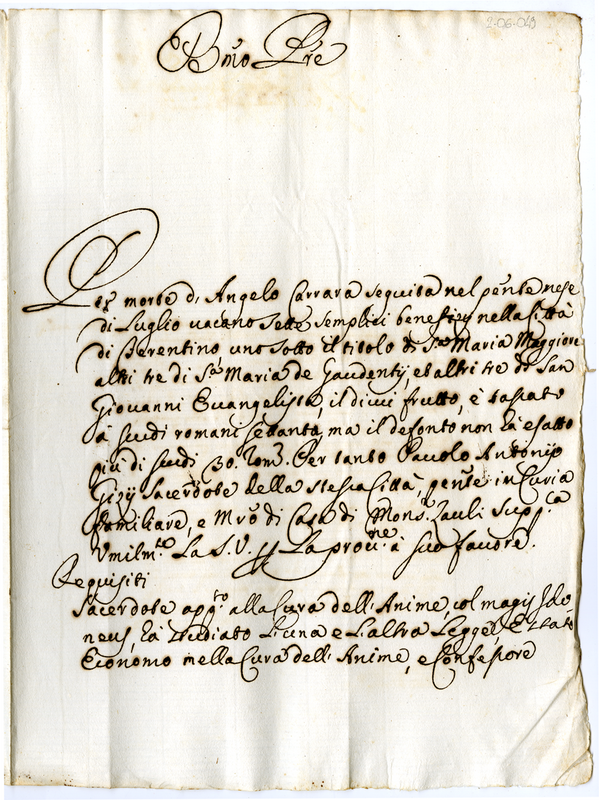 2-06-049
Bmo Pre
Per morte d. Angelo Carrara seguita nel pnte mese
di Luglio vacano sette semplici beneficij nella Città
di Ferentino, uno sotto il titolo di Sta Maria Maggiore
altri tre di Sta Maria de Gaudentij, et altri tre di San
Giovanni Evangelista, il di cui frutto, è tassato
à scudi romani settanta, ma il defonto non hà esatto
più di scudi 30. Per tanto Pavolo Antonio
Sacerdote della stessa Città, pnte in Curia
familiare, e Mro di Casa di Monsr. Pauli suppca
Vmilmte La S. V. Laprovne à suo favore.
Requisiti
Sacerdote appto alla Cura dell'Anime, col magis Ido
neus, hà studiato L'una e L'altra Legge, È stato
Economo nella Cura dell'Anime, e Confessore